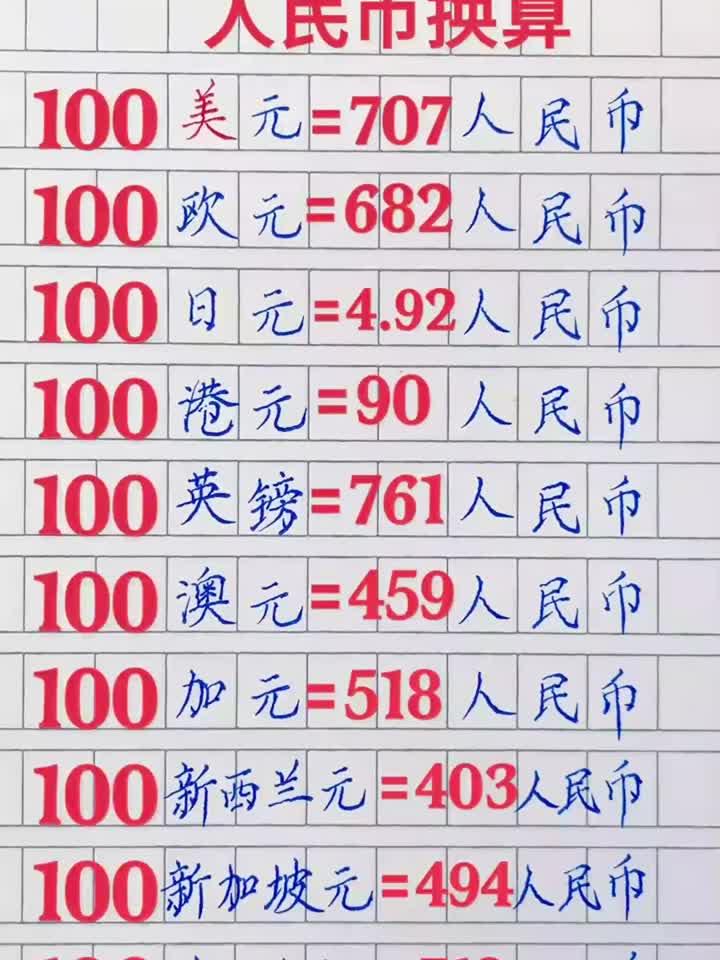 人民币换算
100美元=707人民币
100欧元=682人民币
100日元=4.92人民币
100港元=90人民币
100英镑=761人民币
100澳元=459人民币
100加元=518人民币
100新西兰元=403人民币
100新加坡元=494人民币